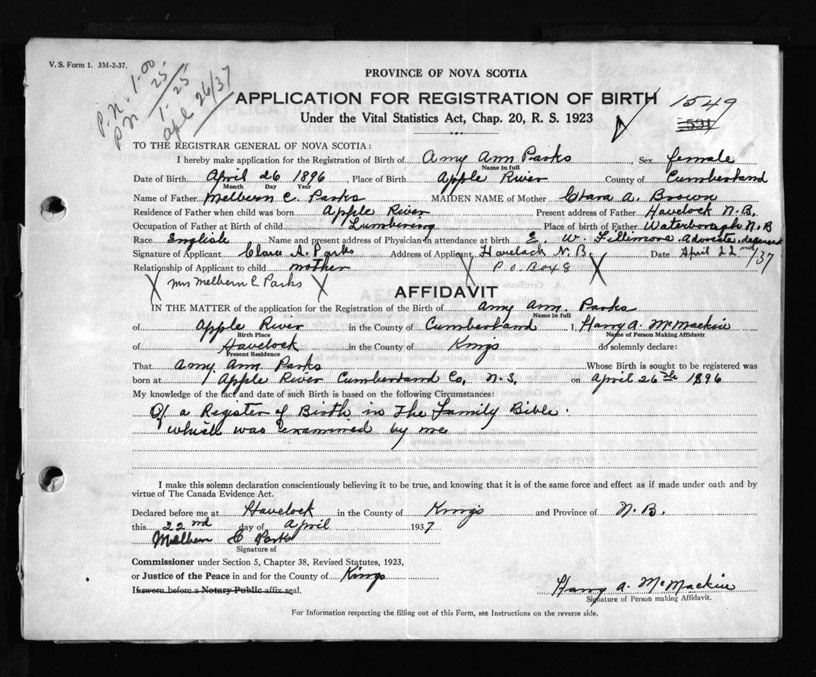 V. S. Form 1. 3M-2-37.
P.N. 1.00
P.N. 25
1.25
apl 26/37
PROVINCE OF NOVA SCOTIA
APPLICATION FOR REGISTRATION OF BIRTH 1549
Under the Vital Statistics Act, Chap. 20, R. S. 1923
TO THE REGISTRAR GENERAL OF NOVA SCOTIA:
I hereby make application for the Registration of Birth of Amy Ann Parks, Sex female
Name in full
Date of Birth April 26 1896, Place of Birth Apple River County of Cumberland
Month Day Year
Name of Father Melbern C. Parks MAIDEN NAME of Mother Clara A. Brown
Residence of Father when child was born Apple River Present address of Father Havelock N.B.
Occupation of Father at Birth of child Lumbering Place of birth of Father Waterborough N.B
Race English Name and present address of Physician in attendance at birth E. W. deceased
Signature of Applicant Clara A. Parks Address of Applicant Havelock N.B. Date April 22nd /37
Relationship of Applicant to child mother P.O. Box 8
X Mrs Melbern C Parks X X X
AFFIDAVIT
IN THE MATTER of the application for the Registration of the Birth of Amy Ann Parks
Name in full
of Apple River in the County of Cumberland I, Harry A. McMackin
Birth Place Name of Person Making Affidavit
of Havelock in the County of Kings do solemnly declare:
Present Residence
That Amy Ann Parks Whose Birth is sought to be registered was
born at Apple River Cumberland Co, N.S. on April 26th 1896
My knowledge of the fact and date of such Birth is based on the following Circumstances:
Of a Register of Birth in The Family Bible.
which was examined by me
I make this solemn declaration conscientiously believing it to be true, and knowing that it is of the same force and effect as if made under oath and by
virtue of The Canada Evidence Act.
Declared before me at Havelock in the County of Kings and Province of N.B.
this 22nd day of April 1937
Melbern C Parks
Signature of
Commissioner under Section 5, Chapter 38, Revised Statutes, 1923,
or Justice of the Peace in and for the County of Kings
If sworn before a Notary Public affix seal.
Harry A. McMackin
Signature of Person making Affidavit.
For Information respecting the filling out of this Form, see Instructions on the reverse side.